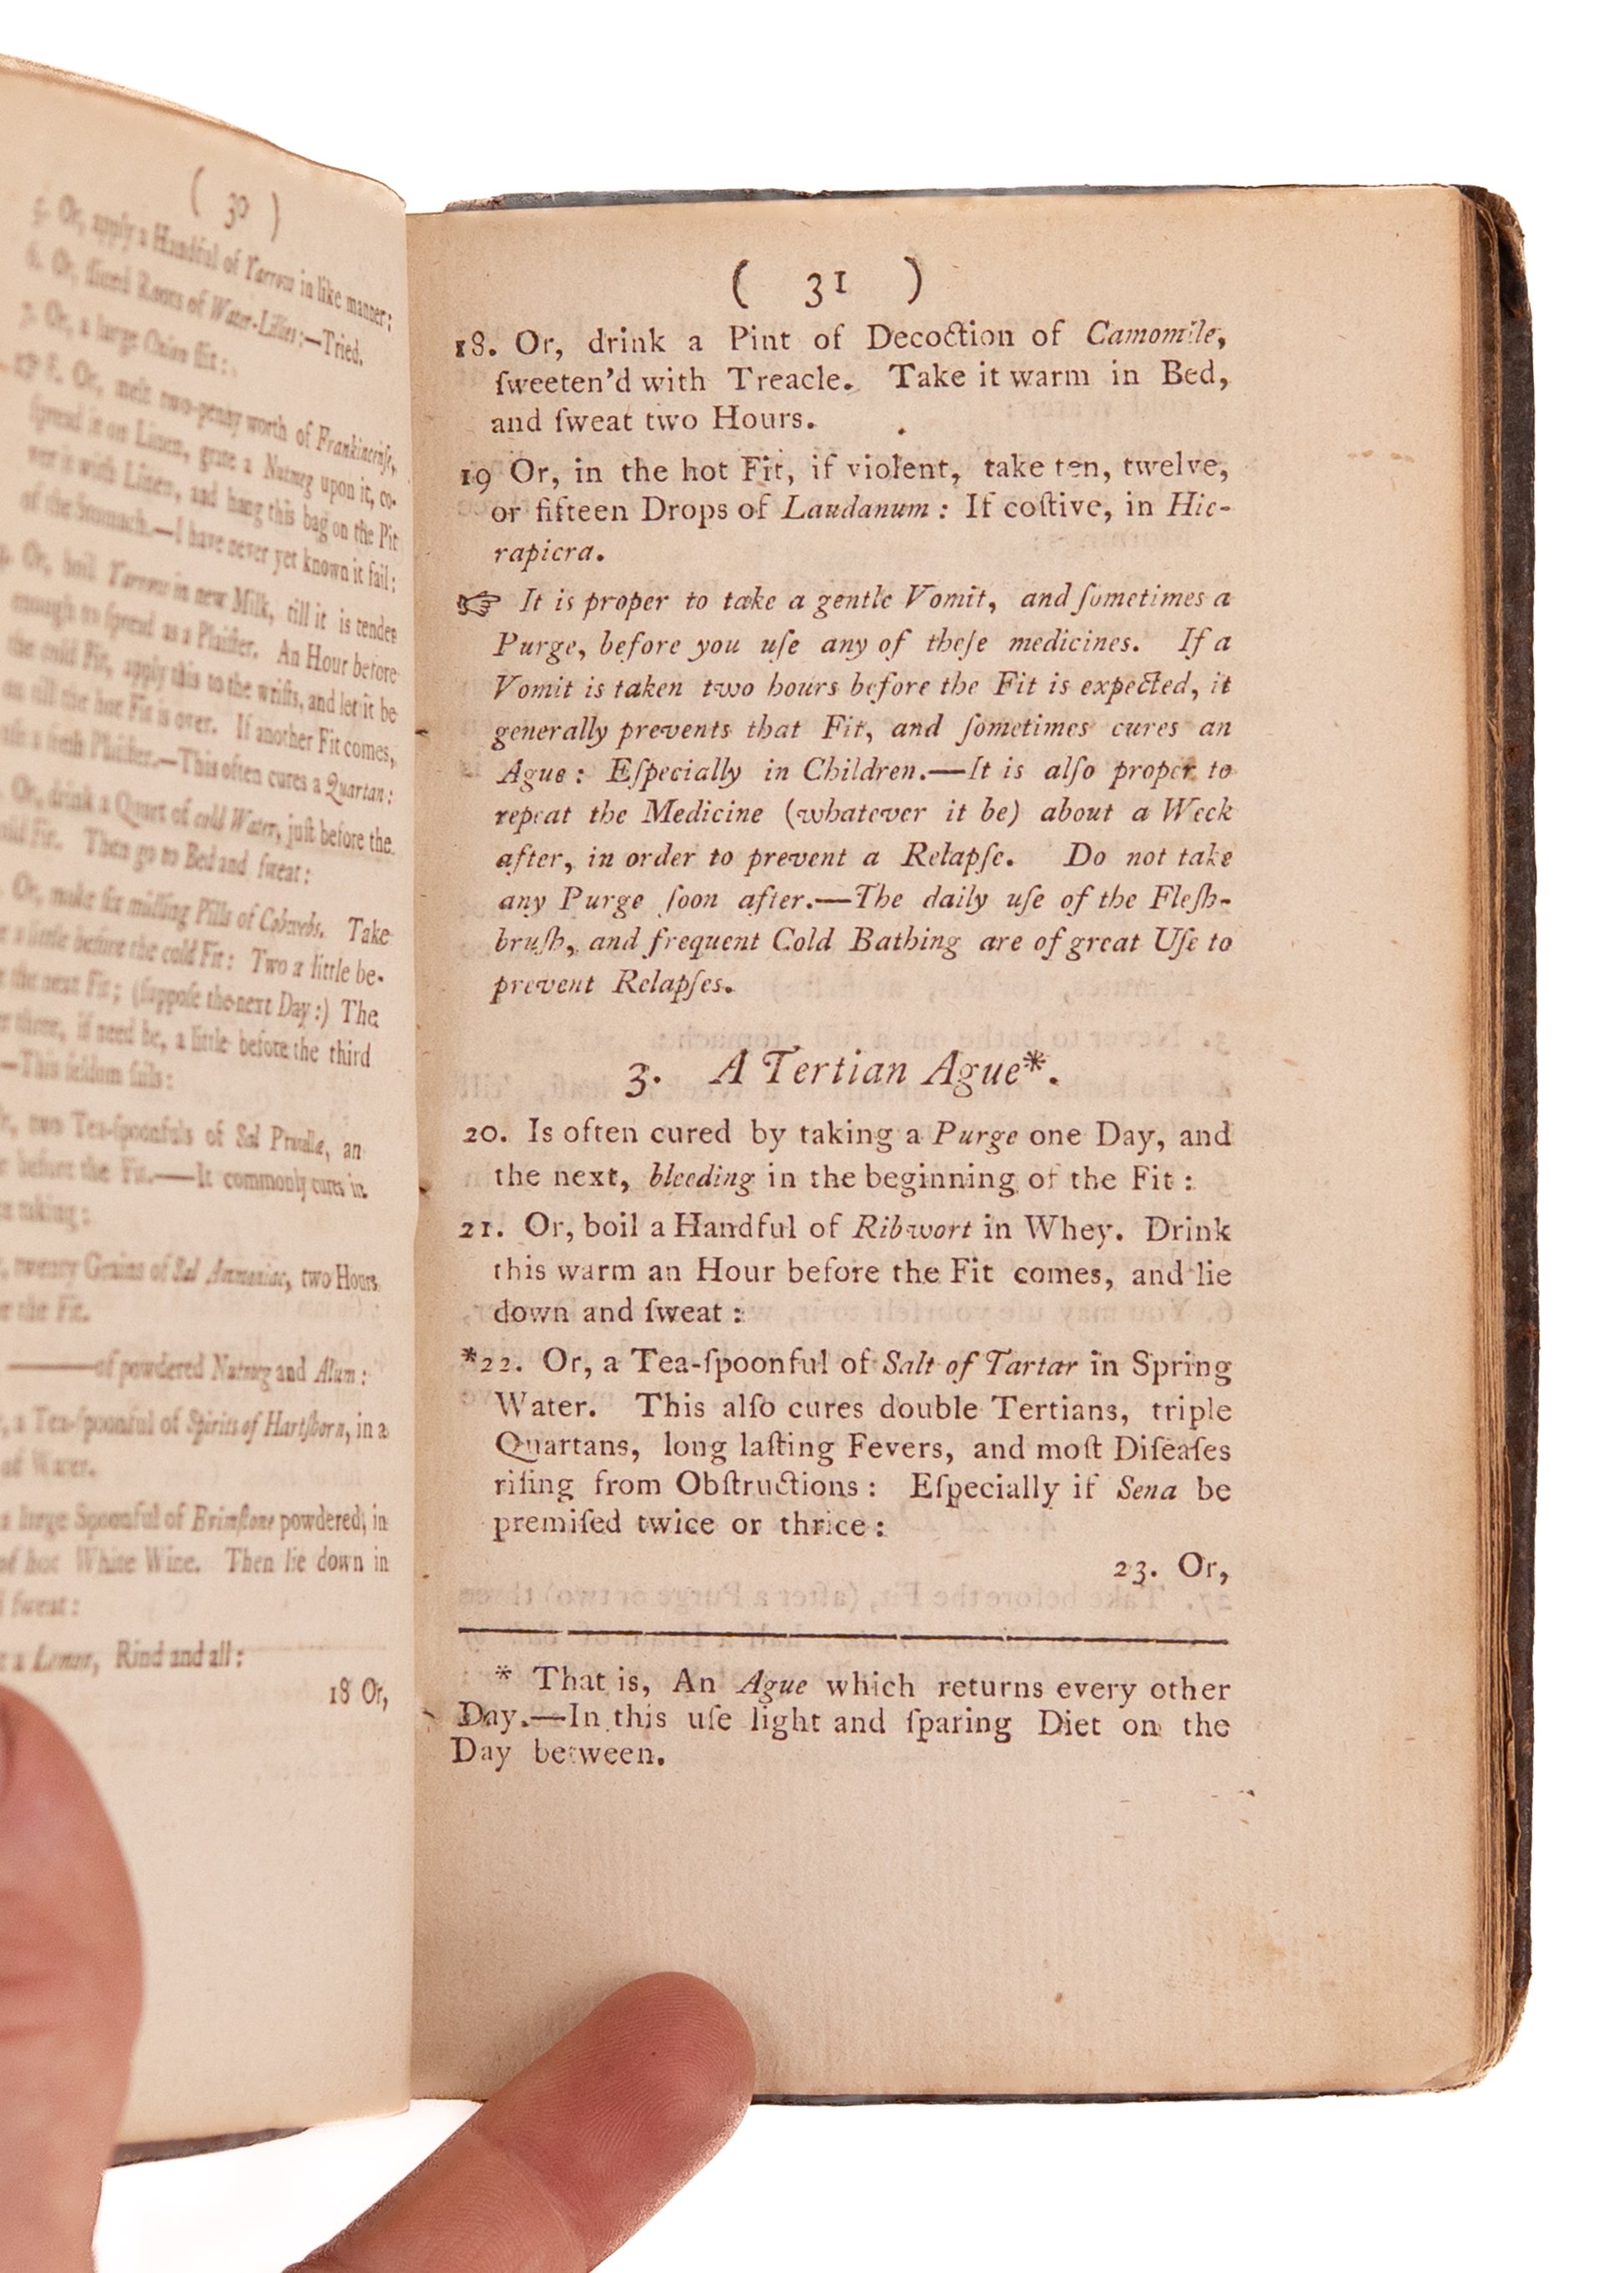 ( 30 )
5. Or, apply a Handful of Yarrow in like manner:
6. Or, ſliced Roots of Water-Lillies:—Tried.
7. Or, a large Onion ſlit:
8. Or, melt two-penny worth of Frankincenſe,
ſpread it on Linen, grate a Nutmeg upon it, co-
ver it with Linen, and hang this bag on the Pit
of the Stomach.—I have never yet known it fail:
Or, boil Yarrow in new Milk, till it is tender
enough to ſpread as a Plaiſter. An Hour before
the cold Fit, apply this to the wriſts, and let it be
on till the hot Fit is over. If another Fit comes,
uſe a freſh Plaiſter.—This often cures a Quartan:
Or, drink a Quart of cold Water, juſt before the
cold Fit. Then go to Bed and ſweat:
Or, make ſix Pills of Cobwebs. Take
a little before the cold Fit: Two a little be-
the next Fit; (ſuppoſe the next Day:) The
three, if need be, a little before the third
—This ſeldom fails:
two Tea-ſpoonfuls of Sal Prunellæ, an
before the Fit.——It commonly cures in
taking:
twenty Grains of Sal Ammoniac, two Hours
the Fit.
———of powdered Nutmeg and Alum:
a Tea-ſpoonful of Spirits of Hartſhorn, in a
of Water.
a large Spoonful of Brimſtone powdered, in
of hot White Wine. Then lie down in
ſweat:
a Lemon, Rind and all:
18 Or,
( 31 )
18. Or, drink a Pint of Decoction of Camomile,
ſweeten'd with Treacle. Take it warm in Bed,
and ſweat two Hours.
19 Or, in the hot Fit, if violent, take ten, twelve,
or fifteen Drops of Laudanum: If coſtive, in Hie-
rapicra.
☞ It is proper to take a gentle Vomit, and ſometimes a
Purge, before you uſe any of theſe medicines. If a
Vomit is taken two hours before the Fit is expected, it
generally prevents that Fit, and ſometimes cures an
Ague: Eſpecially in Children.—It is alſo proper to
repeat the Medicine (whatever it be) about a Week
after, in order to prevent a Relapſe. Do not take
any Purge ſoon after.—The daily uſe of the Fleſh-
bruſh, and frequent Cold Bathing are of great Uſe to
prevent Relapſes.
3. A Tertian Ague*.
20. Is often cured by taking a Purge one Day, and
the next, bleeding in the beginning of the Fit:
21. Or, boil a Handful of Ribwort in Whey. Drink
this warm an Hour before the Fit comes, and lie
down and ſweat:
*22. Or, a Tea-ſpoonful of Salt of Tartar in Spring
Water. This alſo cures double Tertians, triple
Quartans, long laſting Fevers, and moſt Diſeaſes
riſing from Obſtructions: Eſpecially if Sena be
premiſed twice or thrice:
23. Or,
* That is, An Ague which returns every other
Day.—In this uſe light and ſparing Diet on the
Day between.